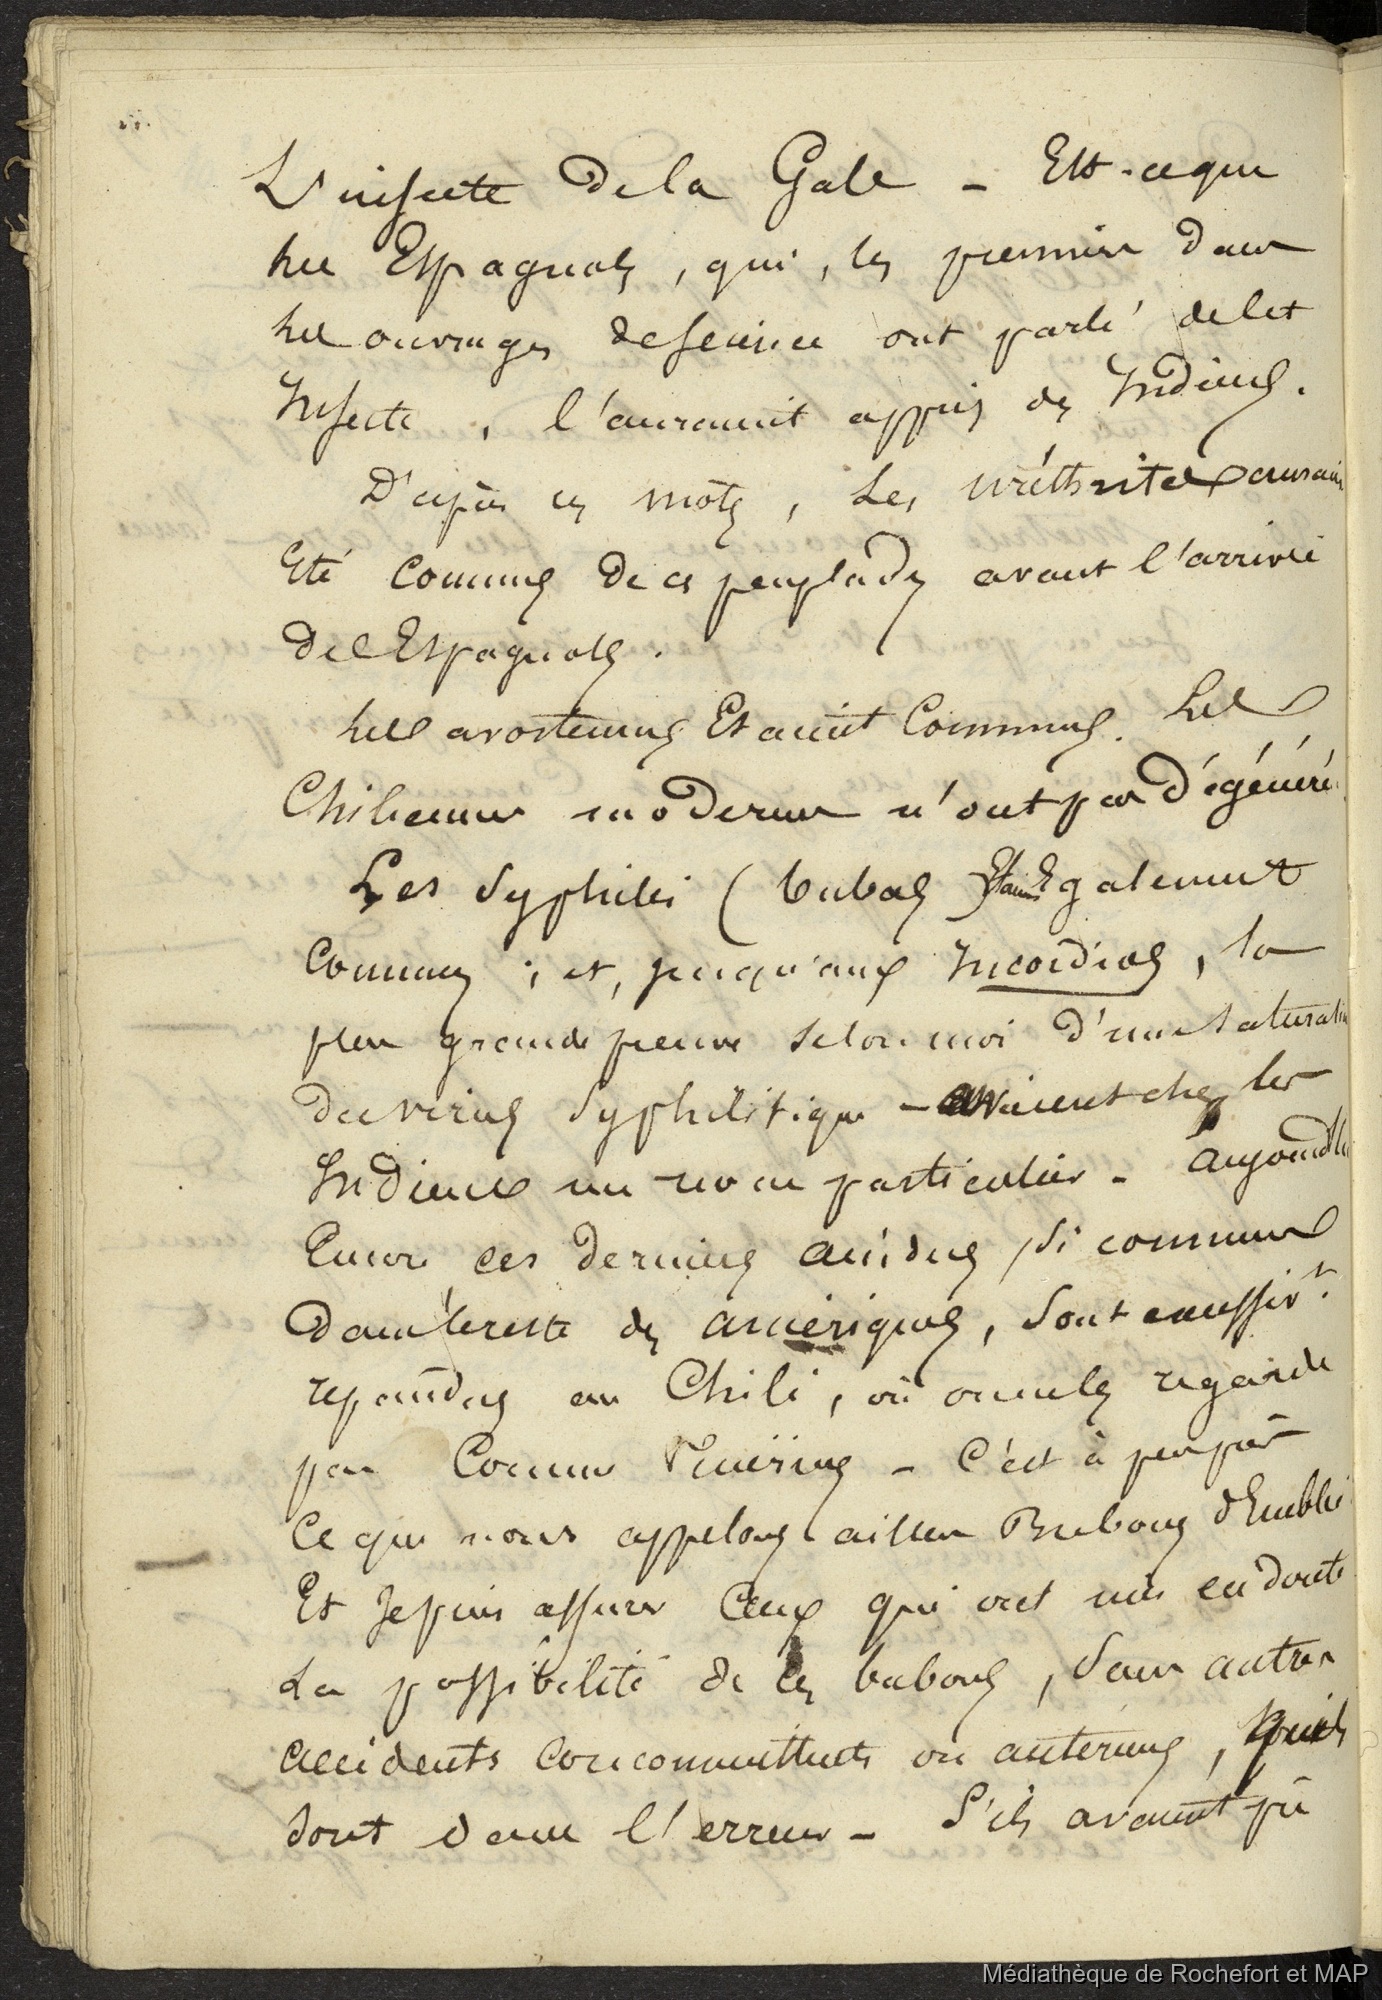 L'insecte de la Gale - Est-ce que
les Espagnols, qui, les premiers dans
les ouvrages de science ont parlé de cet
Insecte, l'auraient appris des Indiens.
D'après ces mots, Les uréthrites auraient
Eté connues de ces peuplades avant l'arrivée
des Espagnols.
Les avortemens Etaient Communs. Les
Chiliennes modernes n'ont pas dégénéré.
Les Syphilis (bubons) Etaient Egalement
Connues ; et, jusqu'aux Incordios, la
plus grande preuve selon moi d'une saturation
du virus Syphilitique - avaient chez les
Indiens un nom particulier - aujourd'hui
Encore ces derniers accidens, si communs
dans le reste des amériques, Sont aussi
répandus au Chili, où on ne les regarde
pas Comme Vénériens - C'est à peu près
Ce que nous appelons ailleurs Bubons d'Emblée
Et Je puis assurer Ceux qui ont mis en doute
La possibilité de ces bubons, sans autres
accidents concomittants ou antérieurs, qu'ils
sont dans l'erreur - S'ils avaient pû
Médiathèque de Rochefort et MAP